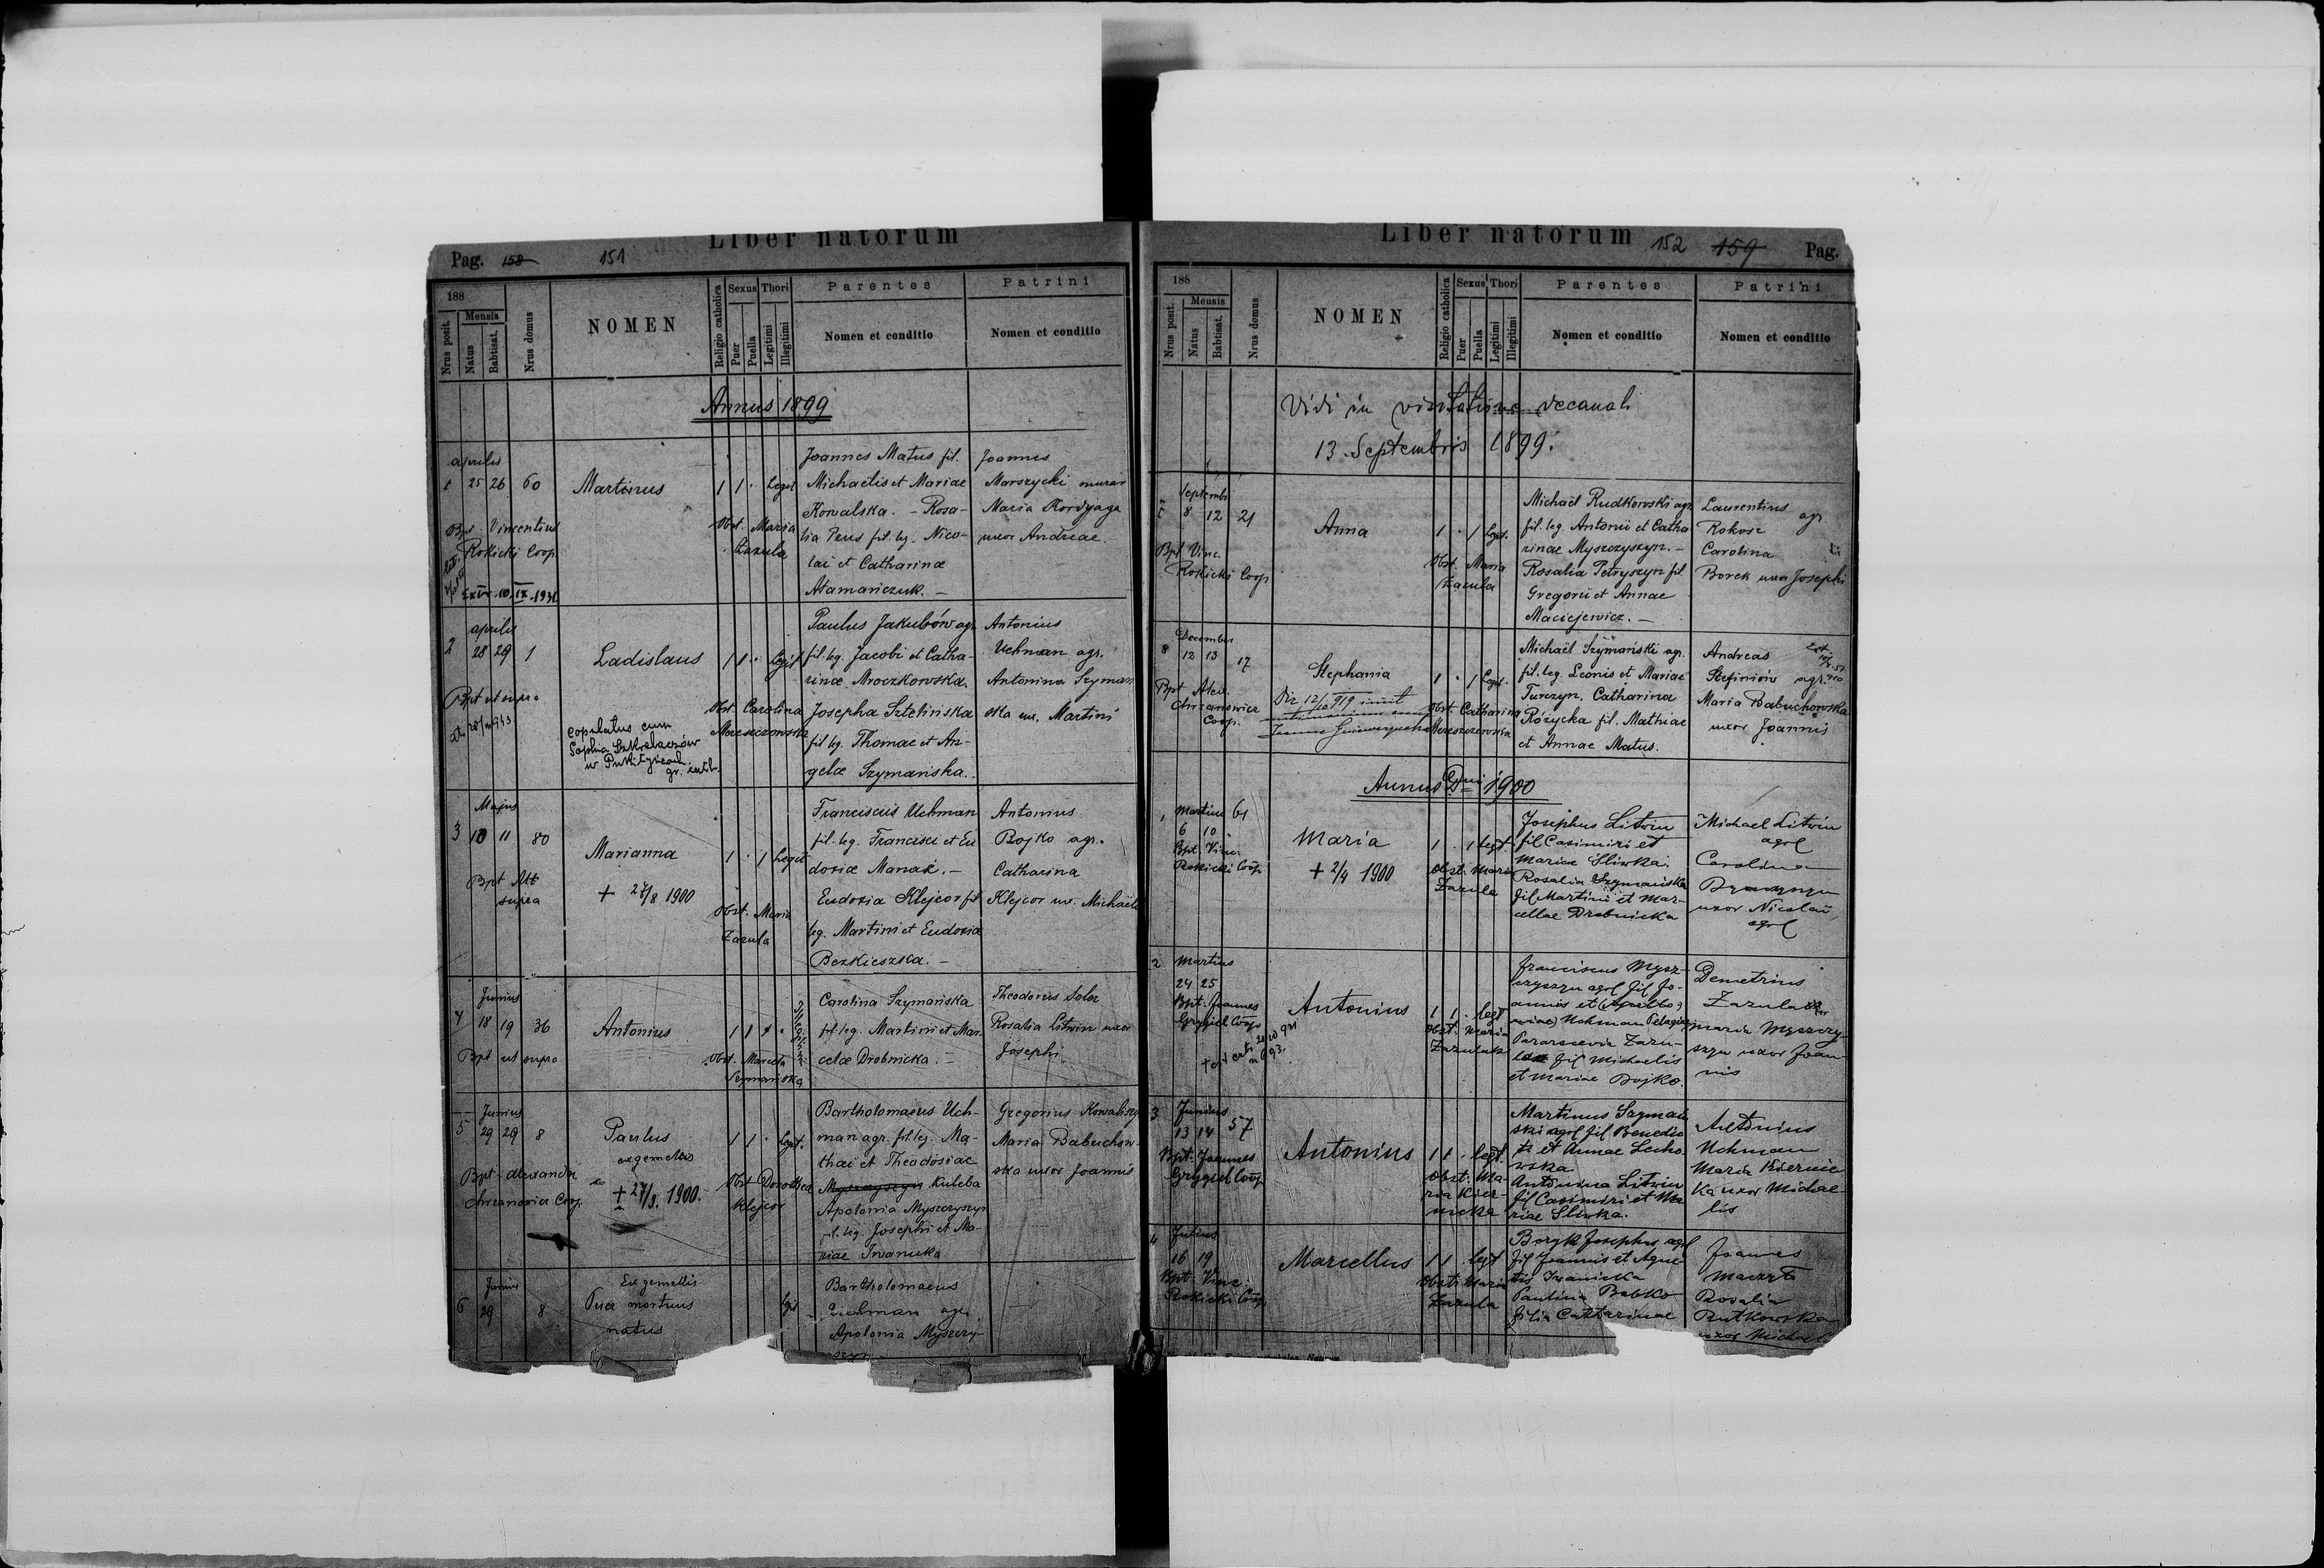 Liber natorum
Pag. 158 151
188
Nrus posit.
Mensis
Natus
Babtisat.
Nrus domus
NOMEN
Religio catholica
Sexus
Puer
Puella
Thori
Legitimi
Illegitimi
Parentes
Nomen et conditio
Patrini
Nomen et conditio
Annus 1899
aprilis
1 25 26 60
Martinus
1 1 · Legit
Obst. Maria
Zazula
Bpt. Vincentius
Rokicki Coop.
Joannes Matus fil.
Michaëlis et Mariae
Kowalska. - Rosa-
lia Prus fil. leg. Nico-
lai et Catharinæ
Atamańczuk. -
Joannes
Marszycki murar
Maria Kordyaga
uxor Andreae.
aprilis
2 28 29 1
Ladislaus
1 1 · Legit
Obst. Carolina
Mereszczowska
Bpt ut supra
copulatus cum
Sophia Szkrabaczów
w Puklityczach
gr. cath.
Paulus Jakubów agr.
fil. leg. Jacobi et Catha-
rinæ Mroczkowska.
Josepha Sztelińska
fil leg. Thomae et An-
gelæ Szymańska.
Antonius
Uchman agr.
Antonina Szymań
ska ux. Martini
Majus
3 10 11 80
Marianna
+ 27/8 1900
1 · 1 Legit
Obst. Maria
Zazula
Bpt Ut
supra
Franciscus Uchman
fil. leg. Francisci et Eu
doxiæ Manak. -
Eudoxia Klejcor fil
leg. Martini et Eudoxia
Bezkieszka. -
Antonius
Bojko agr.
Catharina
Klejcor ux. Michaëlis
Junius
4 18 19 36
Antonius
1 1
Illegitimi
Obst. Marcella
Szymańska
Bpt ut supra
Carolina Szymańska
fil. leg. Martini et Mar-
celæ Drobnicka. -
Theodorus Soler
Rosalia Litwin uxor
Josephi
Junius
5 29 29 8
Paulus
ex gemellis
+ 27/3. 1900.
1 1 · legit.
Obst Dorothea
Klejcor
Bpt - Alexander
Chrzanowicz Coop.
Bartholomaeus Uch-
man agr. fil. leg. Ma-
thaei et Theodosiae
Myszczyszyn Kuleba
Apolonia Myszczyszyn
fil. leg. Josephi et Ma-
riae Iwanicka
Gregorius Kowaliszyn
Maria Babuchow-
ska uxor Joannis
Junius
6 29 8
Ex gemellis
Puer mortuus
natus
legit
Bartholomaeus
Uchman agr.
Apolonia Myszczy-
szyn
Liber natorum
152 159 Pag.
188
Nrus posit.
Mensis
Natus
Babtisat.
Nrus domus
NOMEN
Religio catholica
Sexus
Puer
Puella
Thori
Legitimi
Illegitimi
Parentes
Nomen et conditio
Patrini
Nomen et conditio
Vidi in visitatione decanali
13 Septembris 1899.
Septembr
7 8 12 21
Anna
1 · 1 Legit.
Obst. Maria
Zazula
Bpt Vinc.
Rokicki Coop
Michaël Rudkowski agr
fil. leg. Antonii et Catha
rinae Myszczyszyn. -
Rosalia Petryszyn fil.
Gregorii et Annae
Maciejewicz. -
Laurentius agr
Rokosz
Carolina
Borek uxor Josephi
December
8 12 13 17
Stephania
1 · 1 Legit.
Obst Catharina
Mereszczowska
Bpt Alex.
Chrzanowicz
Coop.
Michaël Szymański agr.
fil. leg. Leonis et Mariae
Turczyn. Catharina
Różycka fil. Mathiae
et Annae Matus.
Andreas
Stefiniów agr.
Maria Babuchowska
uxor Joannis
Annus Dni 1900
1 Martius 61
6 10
Bpt. Vinc.
Rokicki Coop.
Maria
+ 2/4 1900
1 · 1 legt.
Obst. Maria
Zazula
Josephus Litwin
fil Casimiri et
Mariae Śliwka.
Rosalia Szymańska
fil Martini et Mar-
cellae Drobnicka
Michael Litwin
agrl
Carolina
uxor Nicolai,
agrl
2 Martius
24 25
Bpt. Joannes
Grygiel Coop.
Antonius
1 1 · legt
Obst. Maria
Zazulak
Franciscus Mysz-
czyszyn agrl fil Jo-
annis et (Apollo-
niae) Uchman Pelagiae
Parascevia Zazu-
lak fil Michaelis
et Mariae Bojko.
Demetrius
Zazulak
Maria Myszczy-
szyn uxor Joan-
nis
3 Junius
13 14 57
Bpt. Joannes
Grygiel Coop
Antonius
1 1 · legt.
Obst. Ma-
ria Kier-
nicka
Martinus Szymań
ski agrl fil Benedic
ti et Annae Lecho
wska.
Antonina Litwin
fil Casimiri et Ma
riae Śliwka.
Antonius
Uchman
Maria Kiernic
ka uxor Michae-
lis
4 Julius
16 19
Bpt Vinc.
Rokicki Coop
Marcellus
1 1 · legt
Obst. Maria
Zazula
Boryk Josephus agrl
fil Joannis et Agne-
tis Iwanicka
Paulina Babko
filia Catharinae
Joannes
Rosalia
Rutkowska
uxor Michael